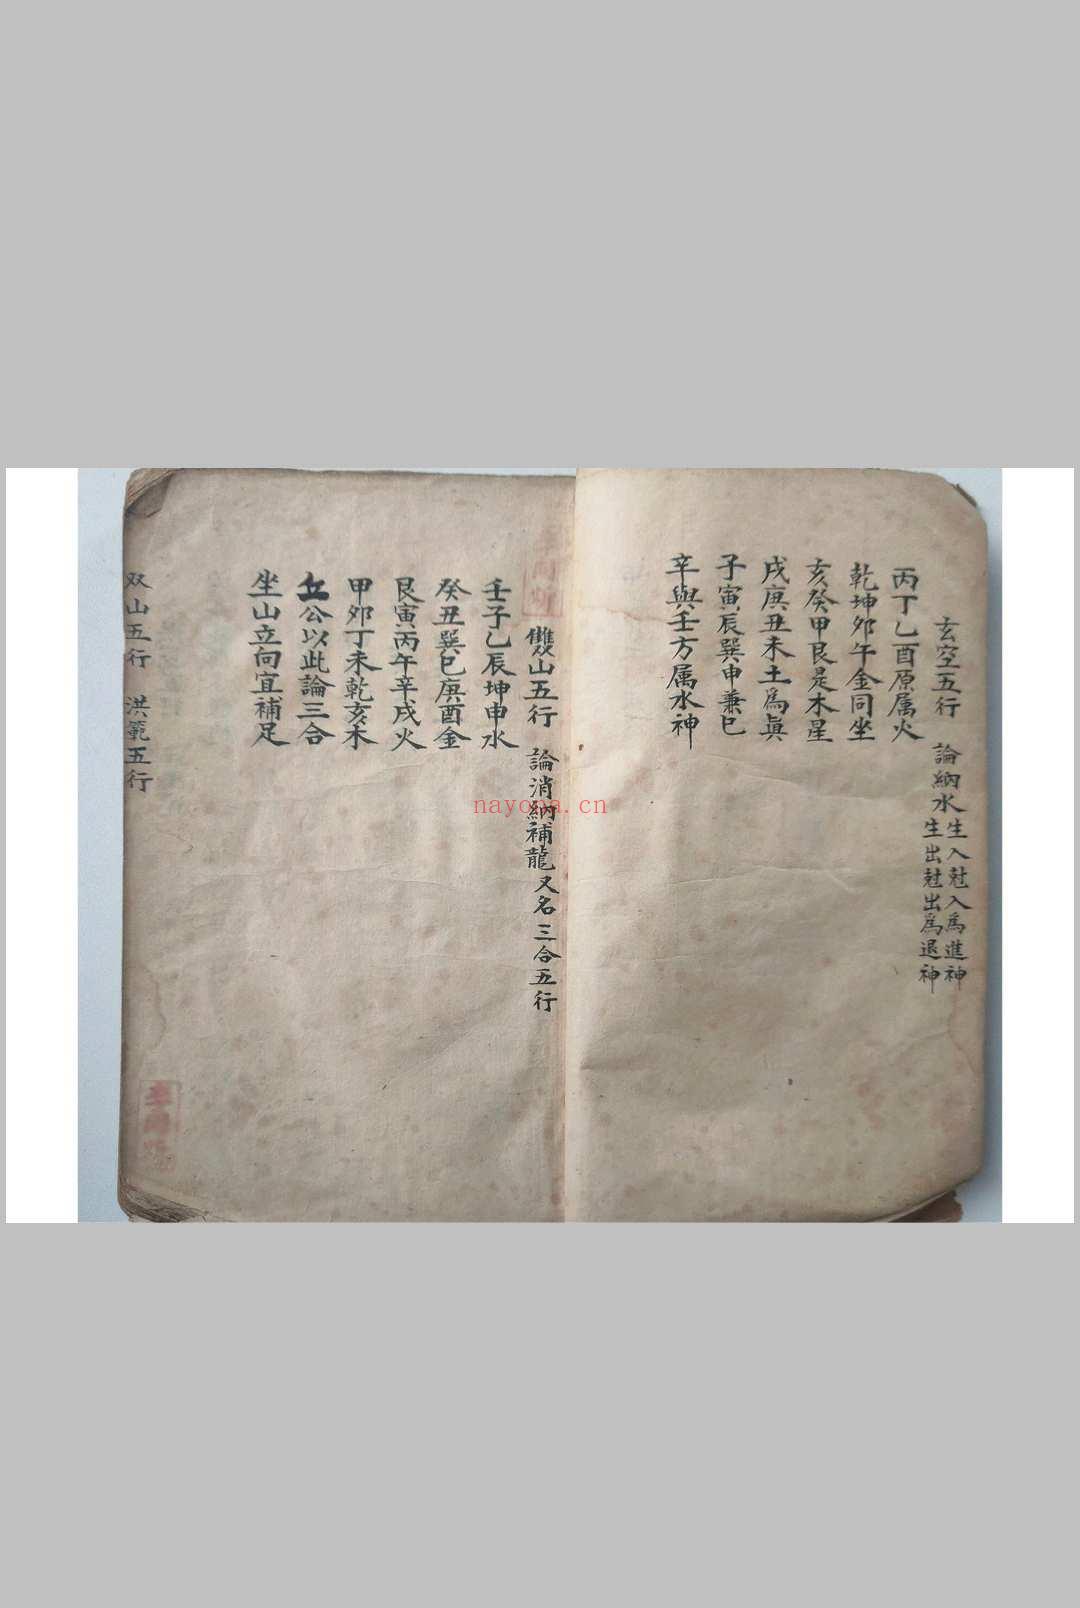 玄空五行　論納水生入尅入爲進神
生出尅出爲退神
丙丁乙酉原属火
乾坤夘午金同坐
亥癸甲艮是木星
戌庚丑未土爲眞
子寅辰巽申兼巳
辛與壬方属水神
雙山五行　論消納補龍又名三合五行
壬子乙辰坤申水
癸丑巽巳庚酉金
艮寅丙午辛戌火
甲夘丁未乾亥木
丘公以此論三合
坐山立向宜補足
双山五行　洪範五行
nayona.cn